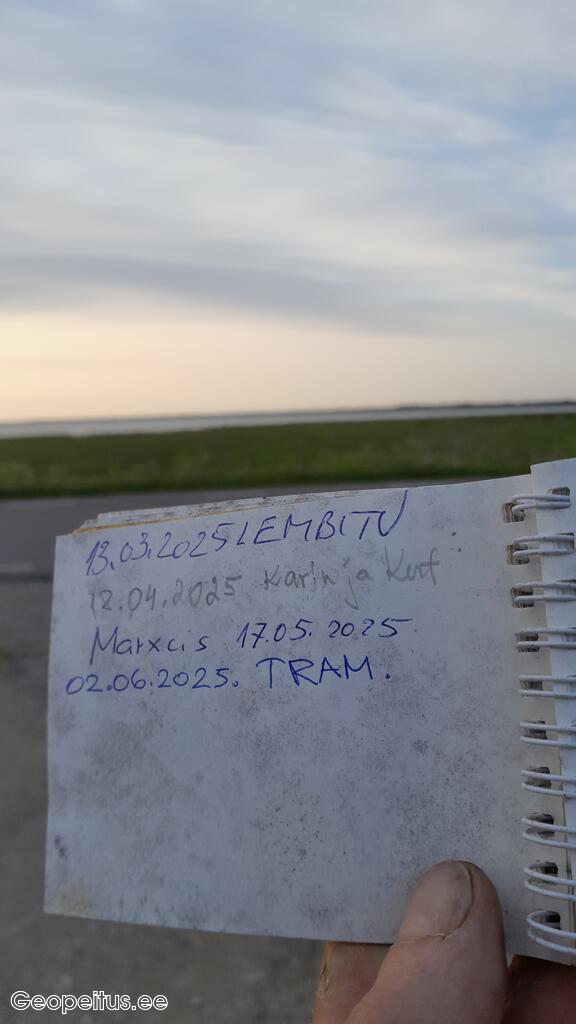 13.03.2025 LEMBITU
12.04.2025 Karin ja Kert
Marxcis 17.05.2025
02.06.2025. TRAM.
Geopeitus.ee